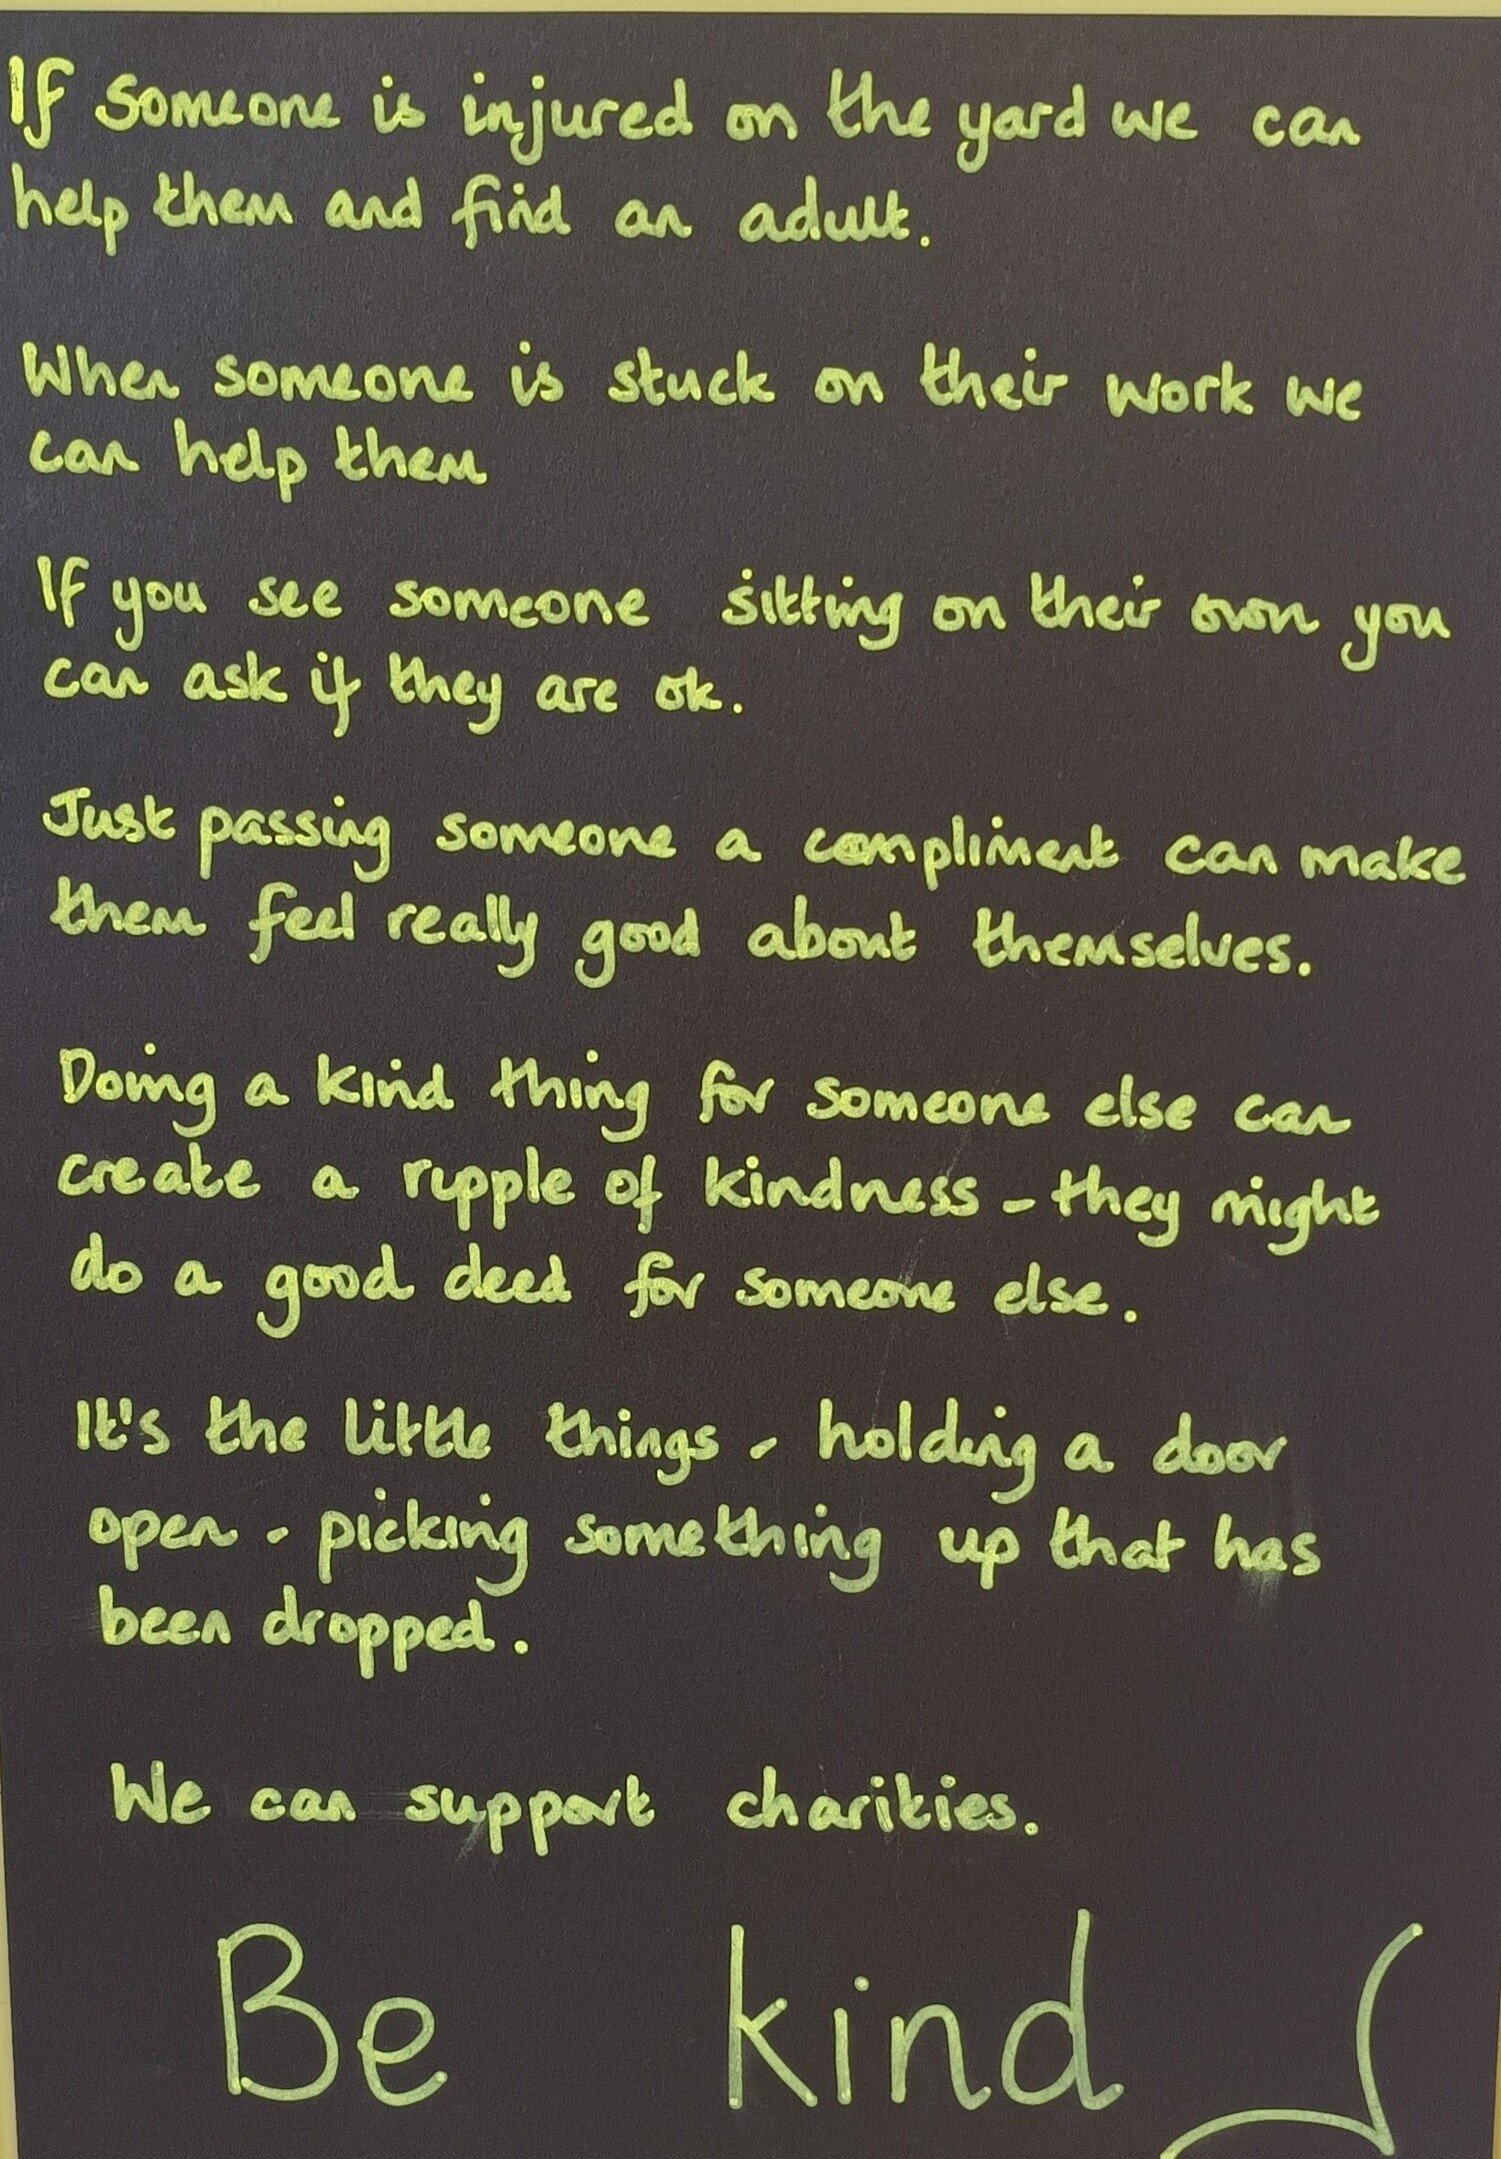 If someone is injured on the yard we can
help them and find an adult.
When someone is stuck on their work we
can help them
If you see someone sitting on their own you
can ask if they are ok.
Just passing someone a compliment can make
them feel really good about themselves.
Doing a kind thing for someone else can
create a ripple of kindness - they might
do a good deed for someone else.
It's the little things - holding a door
open - picking something up that has
been dropped.
We can support charities.
Be kind